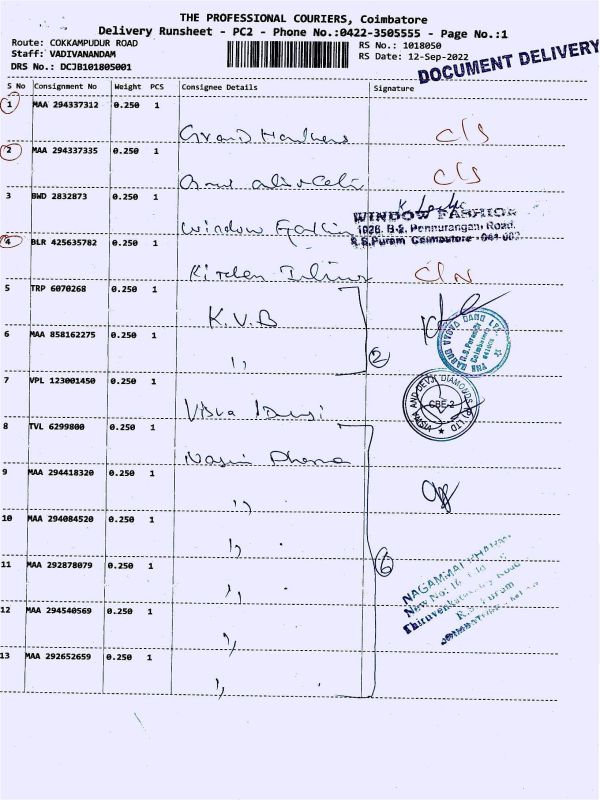 THE PROFESSIONAL COURIERS, Coimbatore
Delivery Runsheet - PC2 - Phone No.:0422-3505555 - Page No.:1
Route: COKKAMPUDUR ROAD
Staff: VADIVANANDAM
DRS No.: DCJB101805001
RS No.: 1018050
RS Date: 12-Sep-2022
DOCUMENT DELIVERY
S No Consignment No Weight PCS Consignee Details Signature
1 MAA 294337312 0.250 1
C/S
2 MAA 294337335 0.250 1
C/S
3 BWD 2832873 0.250 1
Window
WINDOW FASHION
1028, B-2, Ponnurangam Road,
R.S.Puram Coimbatore - 641 002
4 BLR 425635782 0.250 1
Kitchen C/N
5 TRP 6070268 0.250 1
K.V.B
6 MAA 858162275 0.250 1
,, 2
R.S.Puram
Coimbatore
7 VPL 123001450 0.250 1
DEVJI DIAMONDS (P) LTD
CBE-2
8 TVL 6299800 0.250 1
9 MAA 294418320 0.250 1
,,
10 MAA 294084520 0.250 1
,,
11 MAA 292878079 0.250 1
,, 6
NAGAMMAI
New No: 16
R.S. Puram
12 MAA 294540569 0.250 1
,,
13 MAA 292652659 0.250 1
,,